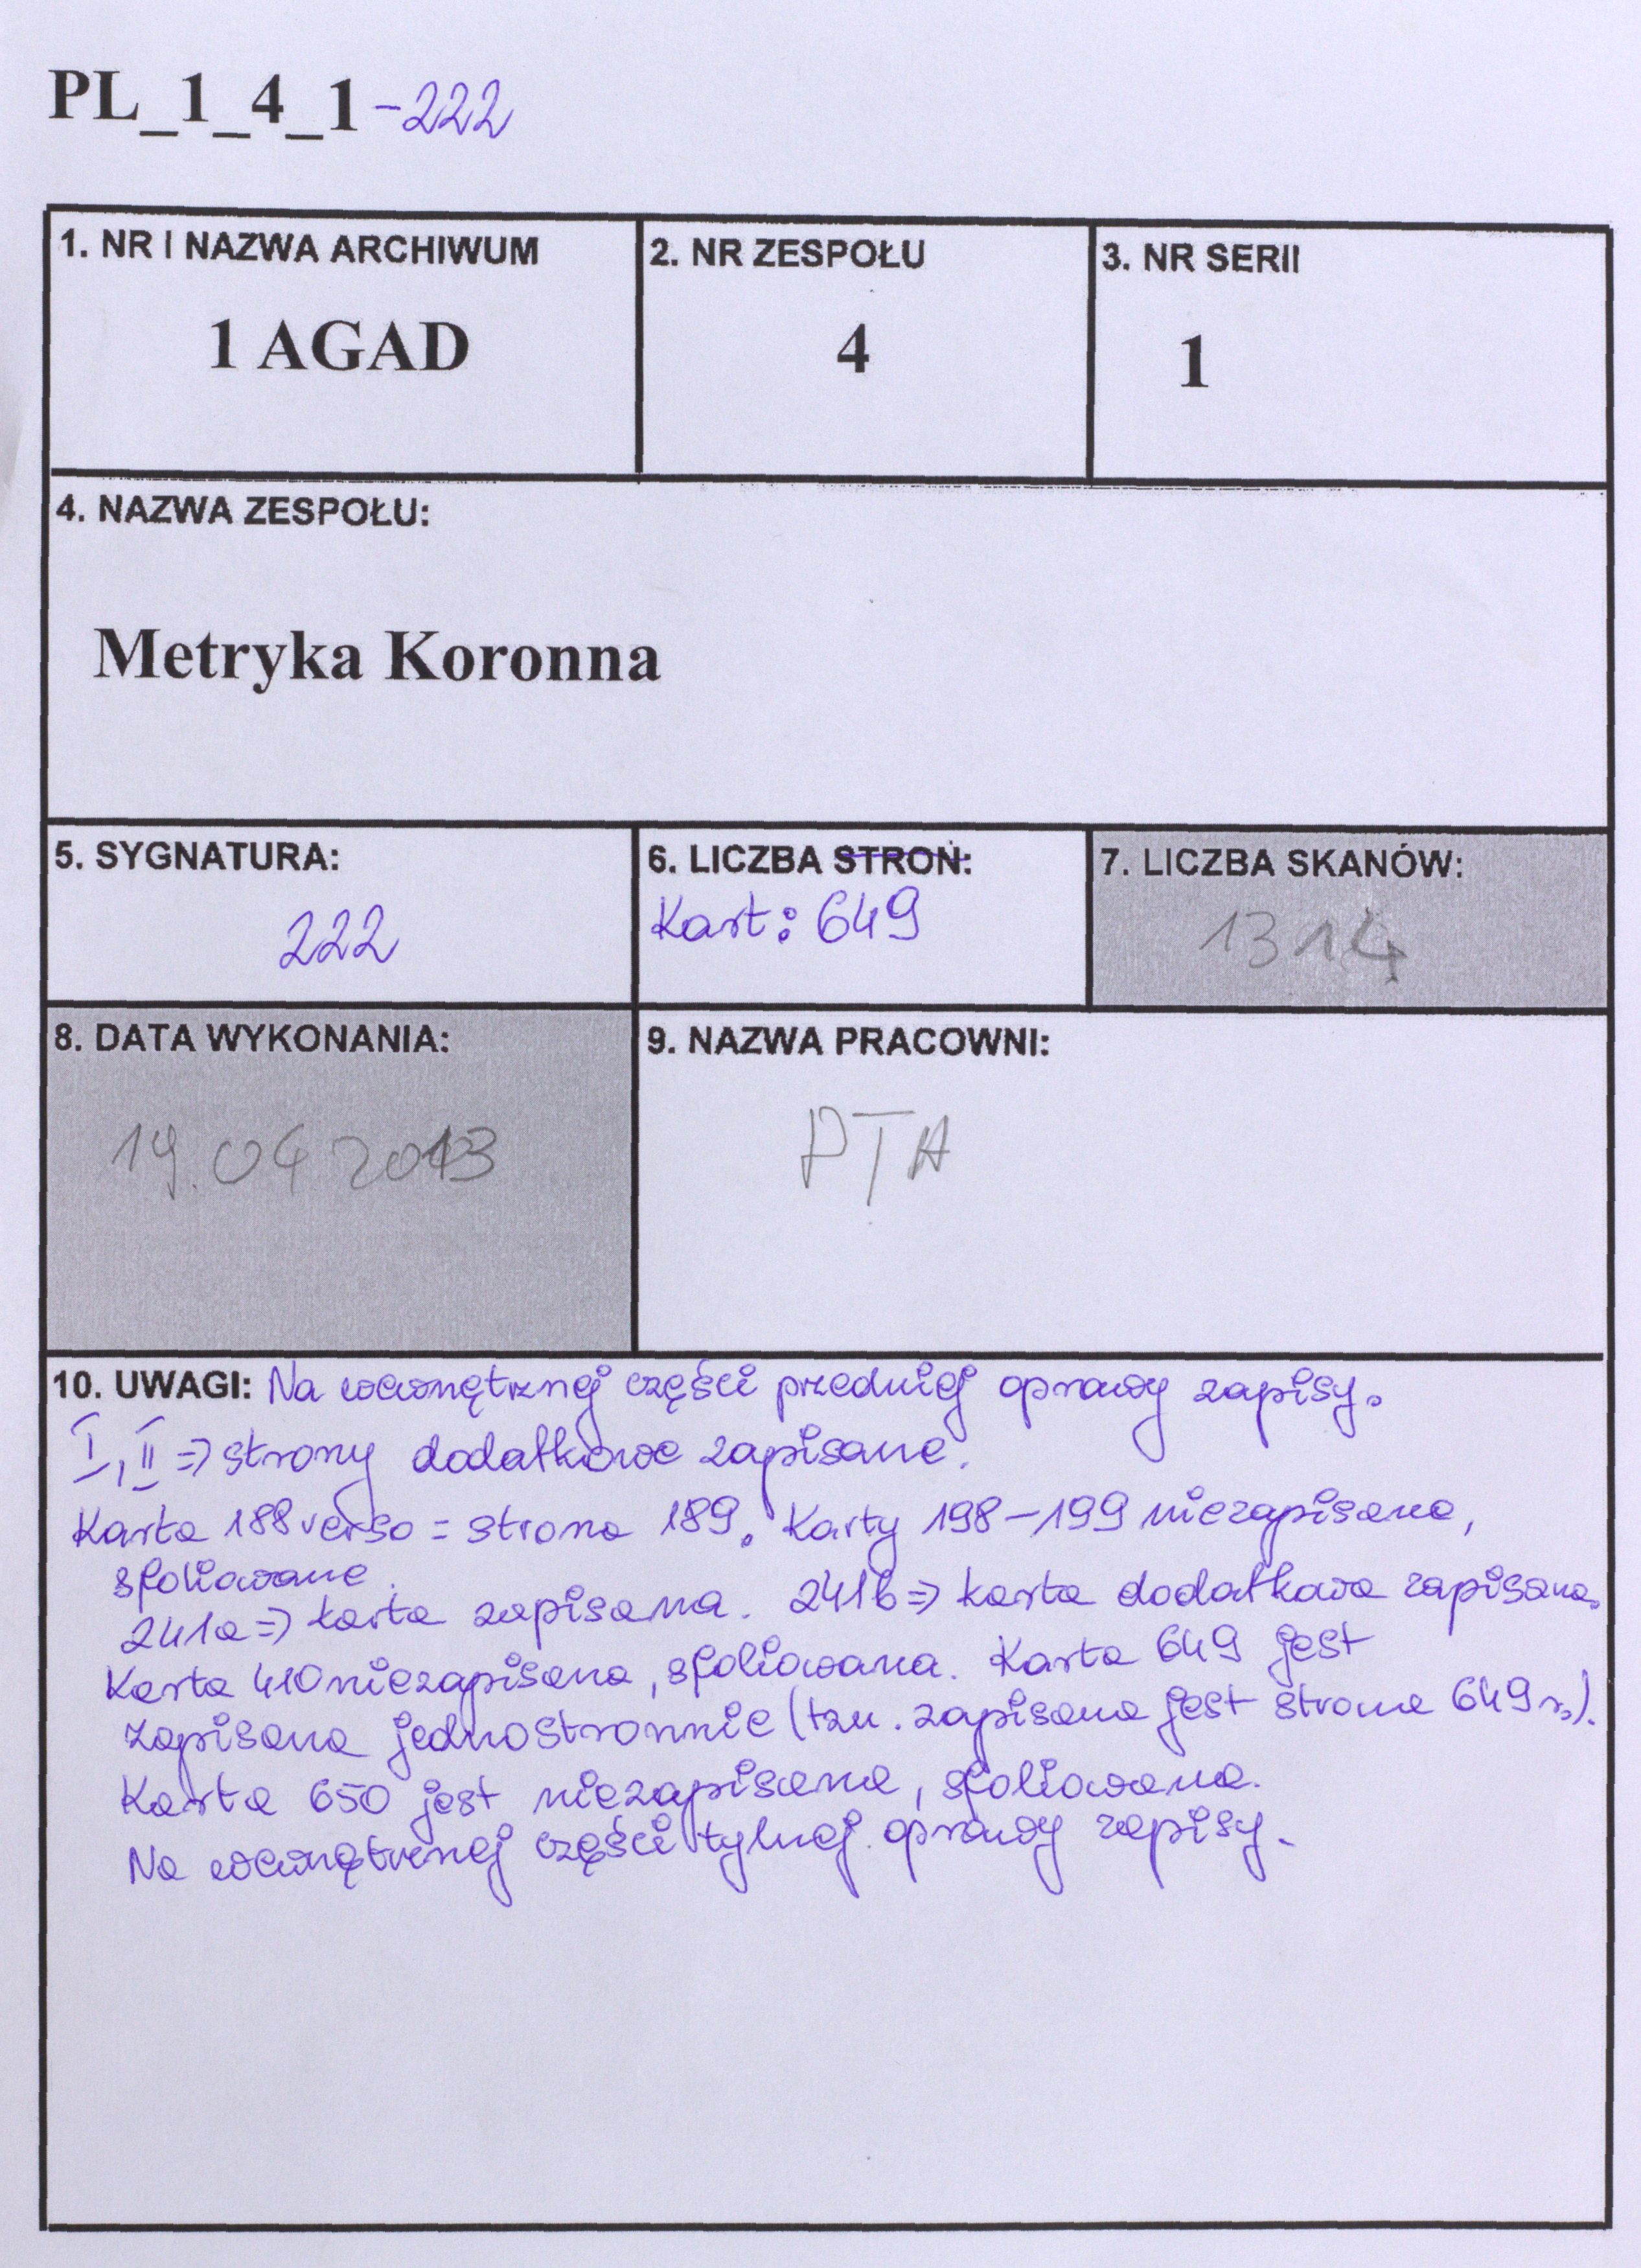 PL_1_4_1-222
1. NR I NAZWA ARCHIWUM
1 AGAD
2. NR ZESPOŁU
4
3. NR SERII
1
4. NAZWA ZESPOŁU:
Metryka Koronna
5. SYGNATURA:
222
6. LICZBA STRON:
Kart: 649
7. LICZBA SKANÓW:
1314
8. DATA WYKONANIA:
19.04 2013
9. NAZWA PRACOWNI:
PTA
10. UWAGI: Na wewnętrznej części przedniej oprawy zapisy.
I, II => strony dodatkowe zapisane.
Karta 188 verso = strona 189. Karty 198-199 niezapisane,
sfoliowane.
241a => karta zapisana. 241b => karta dodatkowa zapisana.
Karta 410 niezapisana, sfoliowana. Karta 649 jest
zapisana jednostronnie (tzn. zapisana jest strona 649 r.).
Karta 650 jest niezapisana, sfoliowana.
Na wewnętrznej części tylnej oprawy zapisy.